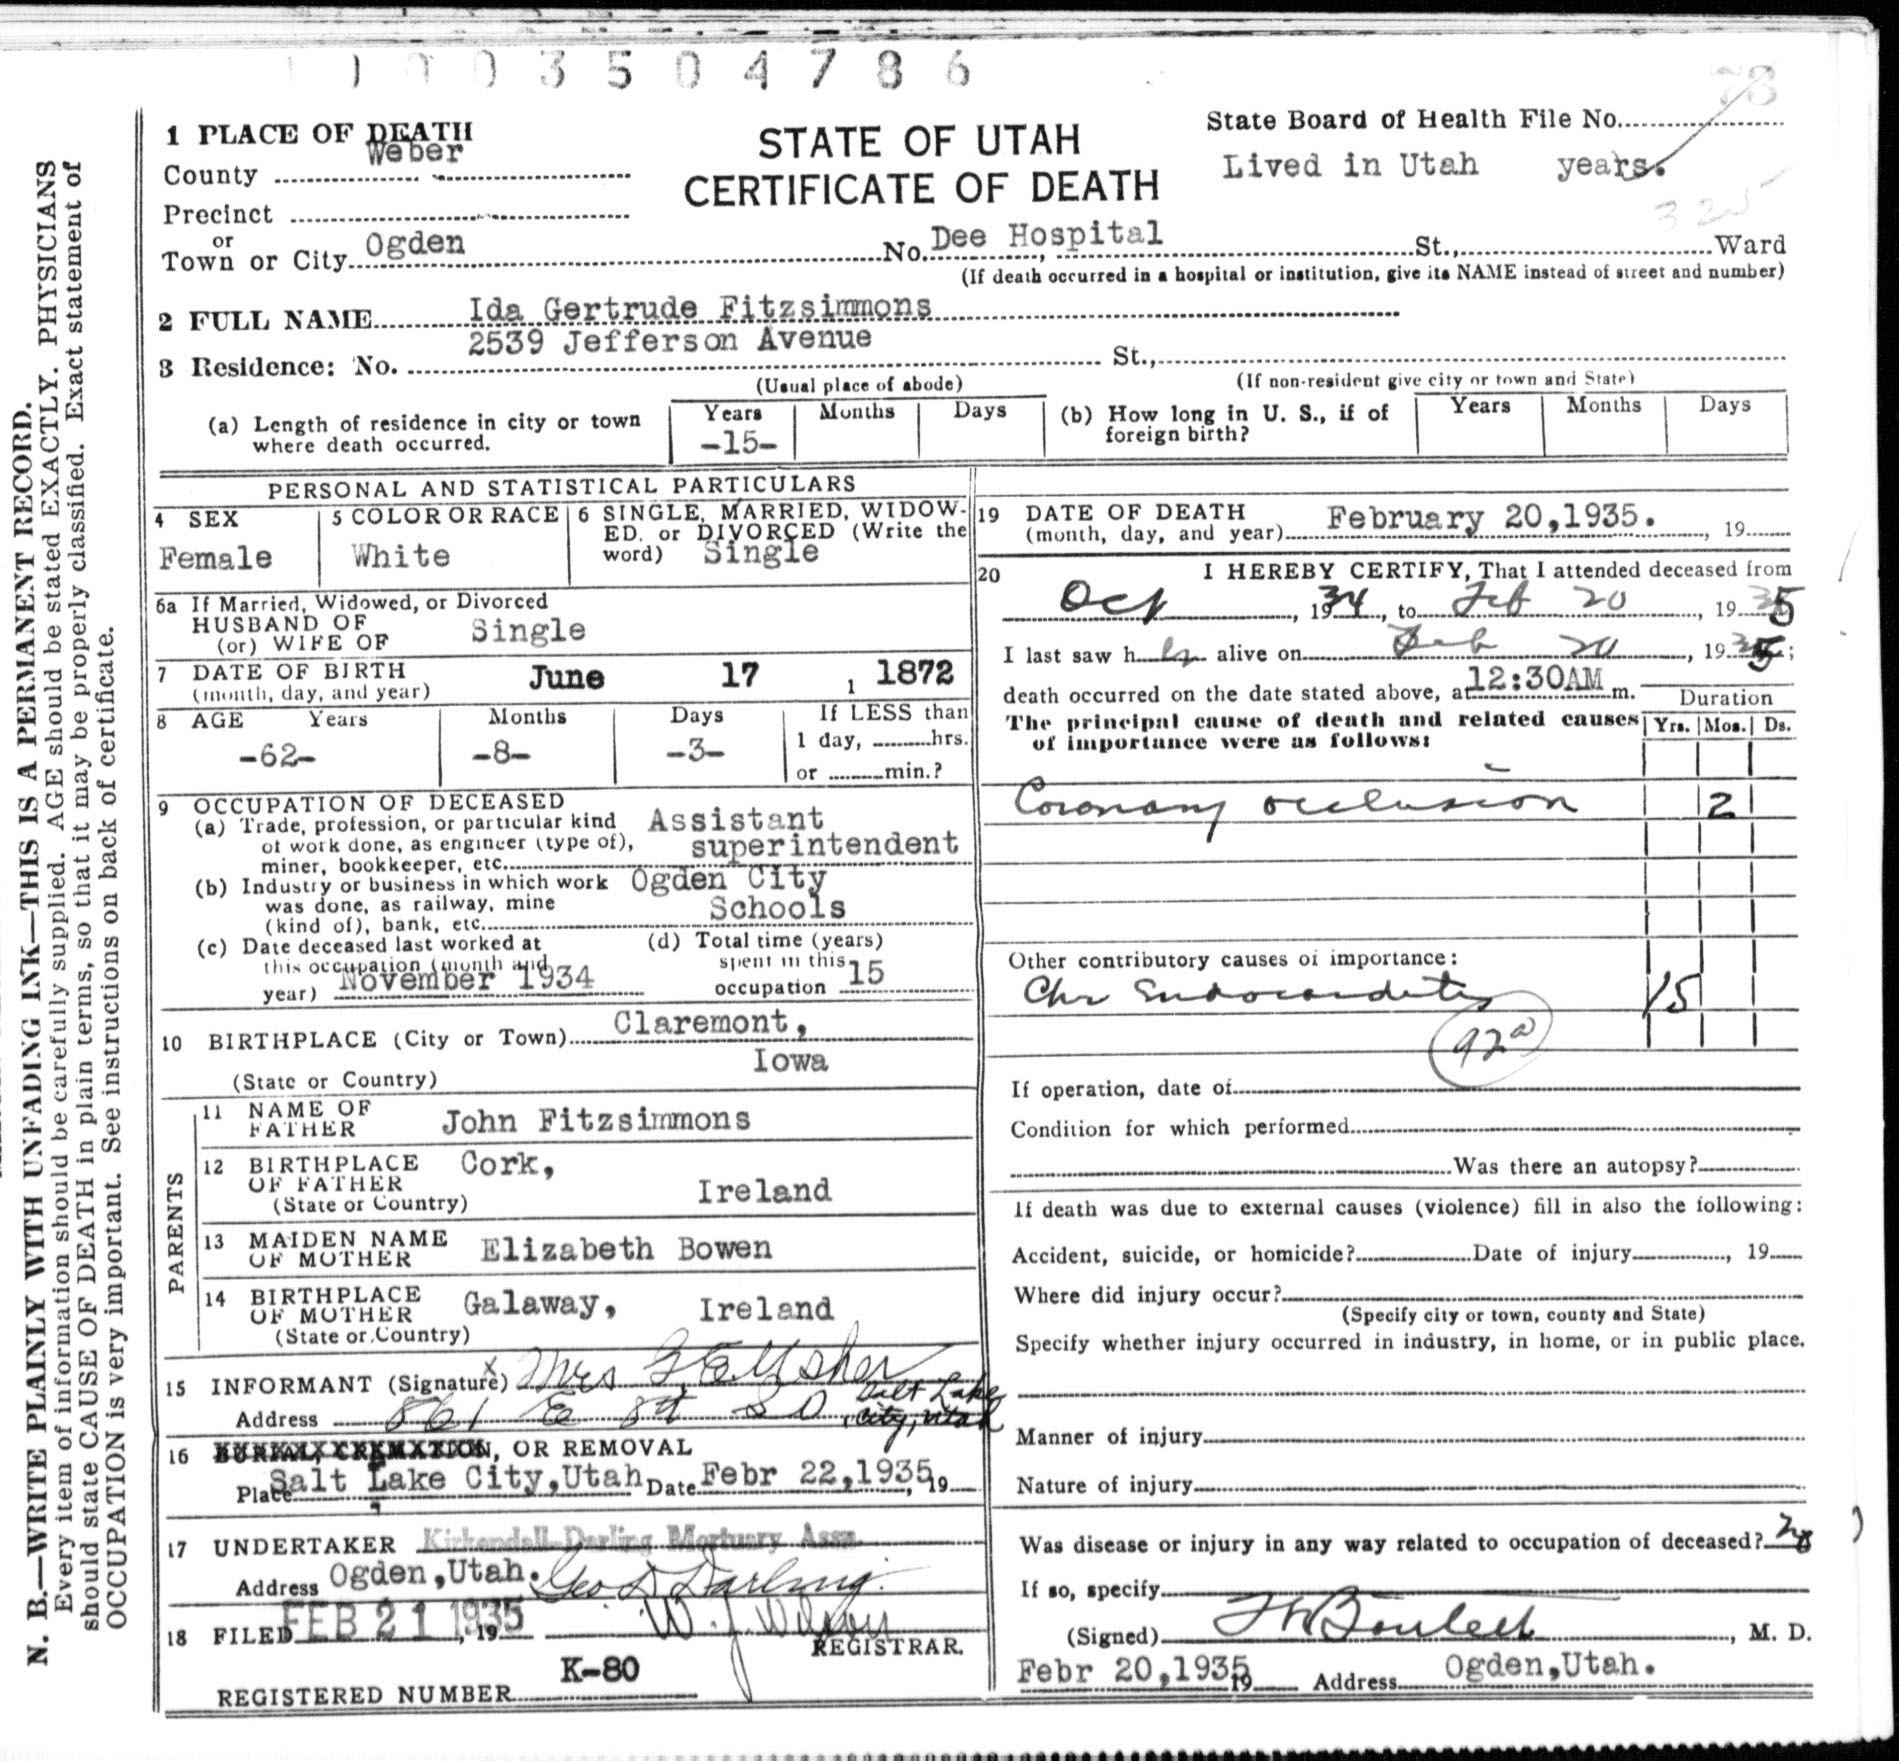 3504786
78
1 PLACE OF DEATH
STATE OF UTAH
CERTIFICATE OF DEATH
State Board of Health File No.
Lived in Utah years.
County Weber
Precinct
or
Town or City Ogden No. Dee Hospital St., Ward
(If death occurred in a hospital or institution, give its NAME instead of street and number)
2 FULL NAME Ida Gertrude Fitzsimmons
3 Residence: No. 2539 Jefferson Avenue St.,
(Usual place of abode) (If non-resident give city or town and State)
(a) Length of residence in city or town where death occurred. Years -15- Months Days
(b) How long in U. S., if of foreign birth? Years Months Days
PERSONAL AND STATISTICAL PARTICULARS
4 SEX
Female
5 COLOR OR RACE
White
6 SINGLE, MARRIED, WIDOW-
ED. or DIVORCED (Write the
word) Single
6a If Married, Widowed, or Divorced
HUSBAND OF
(or) WIFE OF Single
7 DATE OF BIRTH
(month, day, and year) June 17, 1 1872
8 AGE Years Months Days If LESS than
-62- -8- -3- 1 day, hrs.
or min.?
9 OCCUPATION OF DECEASED
(a) Trade, profession, or particular kind
of work done, as engineer (type of),
miner, bookkeeper, etc. Assistant
superintendent
(b) Industry or business in which work
was done, as railway, mine
(kind of), bank, etc. Ogden City
Schools
(c) Date deceased last worked at
this occupation (month and
year) November 1934
(d) Total time (years)
spent in this
occupation 15
10 BIRTHPLACE (City or Town) Claremont,
(State or Country) Iowa
PARENTS
11 NAME OF
FATHER John Fitzsimmons
12 BIRTHPLACE
OF FATHER
(State or Country) Cork, Ireland
13 MAIDEN NAME
OF MOTHER Elizabeth Bowen
14 BIRTHPLACE
OF MOTHER
(State or Country) Galaway, Ireland
15 INFORMANT (Signature) x Mrs
Address 861 E 8th So Salt Lake
City, Utah
16 BURIAL, CREMATION, OR REMOVAL
Place Salt Lake City, Utah Date Febr 22,1935, 19
17 UNDERTAKER Kirkendall-Darling Mortuary Assn.
Address Ogden, Utah. Geo D Darling.
18 FILED FEB 21 1935, 19 W. J. Wilson
REGISTRAR.
K-80
REGISTERED NUMBER
19 DATE OF DEATH
(month, day, and year) February 20,1935. , 19
20 I HEREBY CERTIFY, That I attended deceased from
Oct, 1934, to Feb 20, 1935
I last saw her alive on Feb 20, 1935;
death occurred on the date stated above, at 12:30AM m.
Duration
The principal cause of death and related causes
of importance were as follows:
Yrs. Mos. Ds.
Coronary occlusion 2
Other contributory causes of importance:
Chr Endocarditis 15
92a
If operation, date of
Condition for which performed
Was there an autopsy?
If death was due to external causes (violence) fill in also the following:
Accident, suicide, or homicide? Date of injury, 19
Where did injury occur?
(Specify city or town, county and State)
Specify whether injury occurred in industry, in home, or in public place.
Manner of injury
Nature of injury
Was disease or injury in any way related to occupation of deceased? no
If so, specify
(Signed) , M. D.
Febr 20,1935 19 Address Ogden,Utah.
N. B.—WRITE PLAINLY WITH UNFADING INK—THIS IS A PERMANENT RECORD.
Every item of information should be carefully supplied. AGE should be stated EXACTLY. PHYSICIANS
should state CAUSE OF DEATH in plain terms, so that it may be properly classified. Exact statement of
OCCUPATION is very important. See instructions on back of certificate.